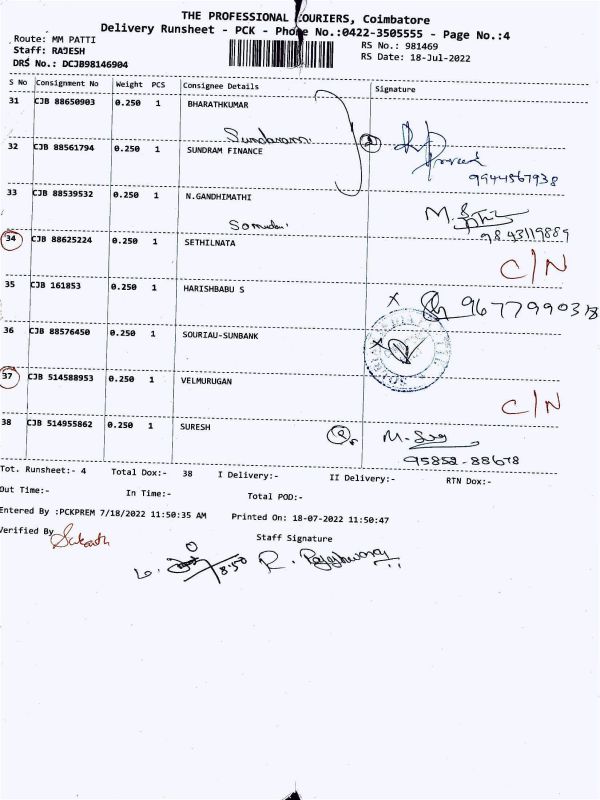 THE PROFESSIONAL COURIERS, Coimbatore
Delivery Runsheet - PCK - Phone No.:0422-3505555 - Page No.:4
Route: MM PATTI
RS No.: 981469
Staff: RAJESH
RS Date: 18-Jul-2022
DRS No.: DCJB98146904
S No Consignment No Weight PCS Consignee Details Signature
31 CJB 88650903 0.250 1 BHARATHKUMAR
Sundaram
32 CJB 88561794 0.250 1 SUNDRAM FINANCE
9944567938
33 CJB 88539532 0.250 1 N.GANDHIMATHI
9843119889
34 CJB 88625224 0.250 1 SETHILNATA C/N
35 CJB 161853 0.250 1 HARISHBABU S
X 9677990378
36 CJB 88576450 0.250 1 SOURIAU-SUNBANK
X
37 CJB 514588953 0.250 1 VELMURUGAN C/N
38 CJB 514955862 0.250 1 SURESH
95852-88678
Tot. Runsheet:- 4 Total Dox:- 38 I Delivery:- II Delivery:- RTN Dox:-
Out Time:- In Time:- Total POD:-
Entered By :PCKPREM 7/18/2022 11:50:35 AM Printed On: 18-07-2022 11:50:47
Verified By Staff Signature
8:50